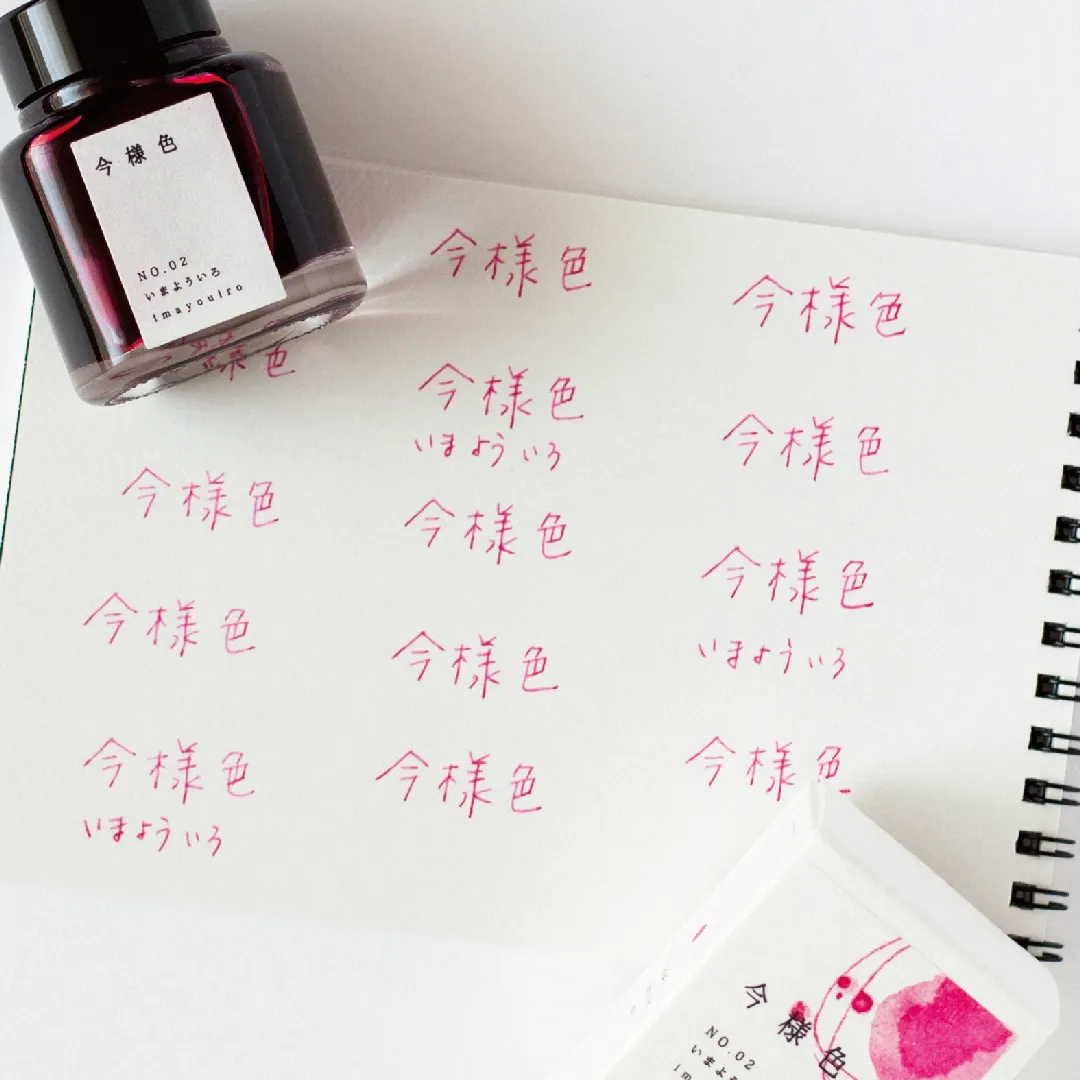 今様色
NO.02
いまよういろ
imayouiro
様色
今様色
今様色
今様色
いまよういろ
今様色
今様色
いまよういろ
今様色
今様色
今様色
今様色
今様色
今様色
いまよういろ
今様色
今様色
NO.02
いまよ